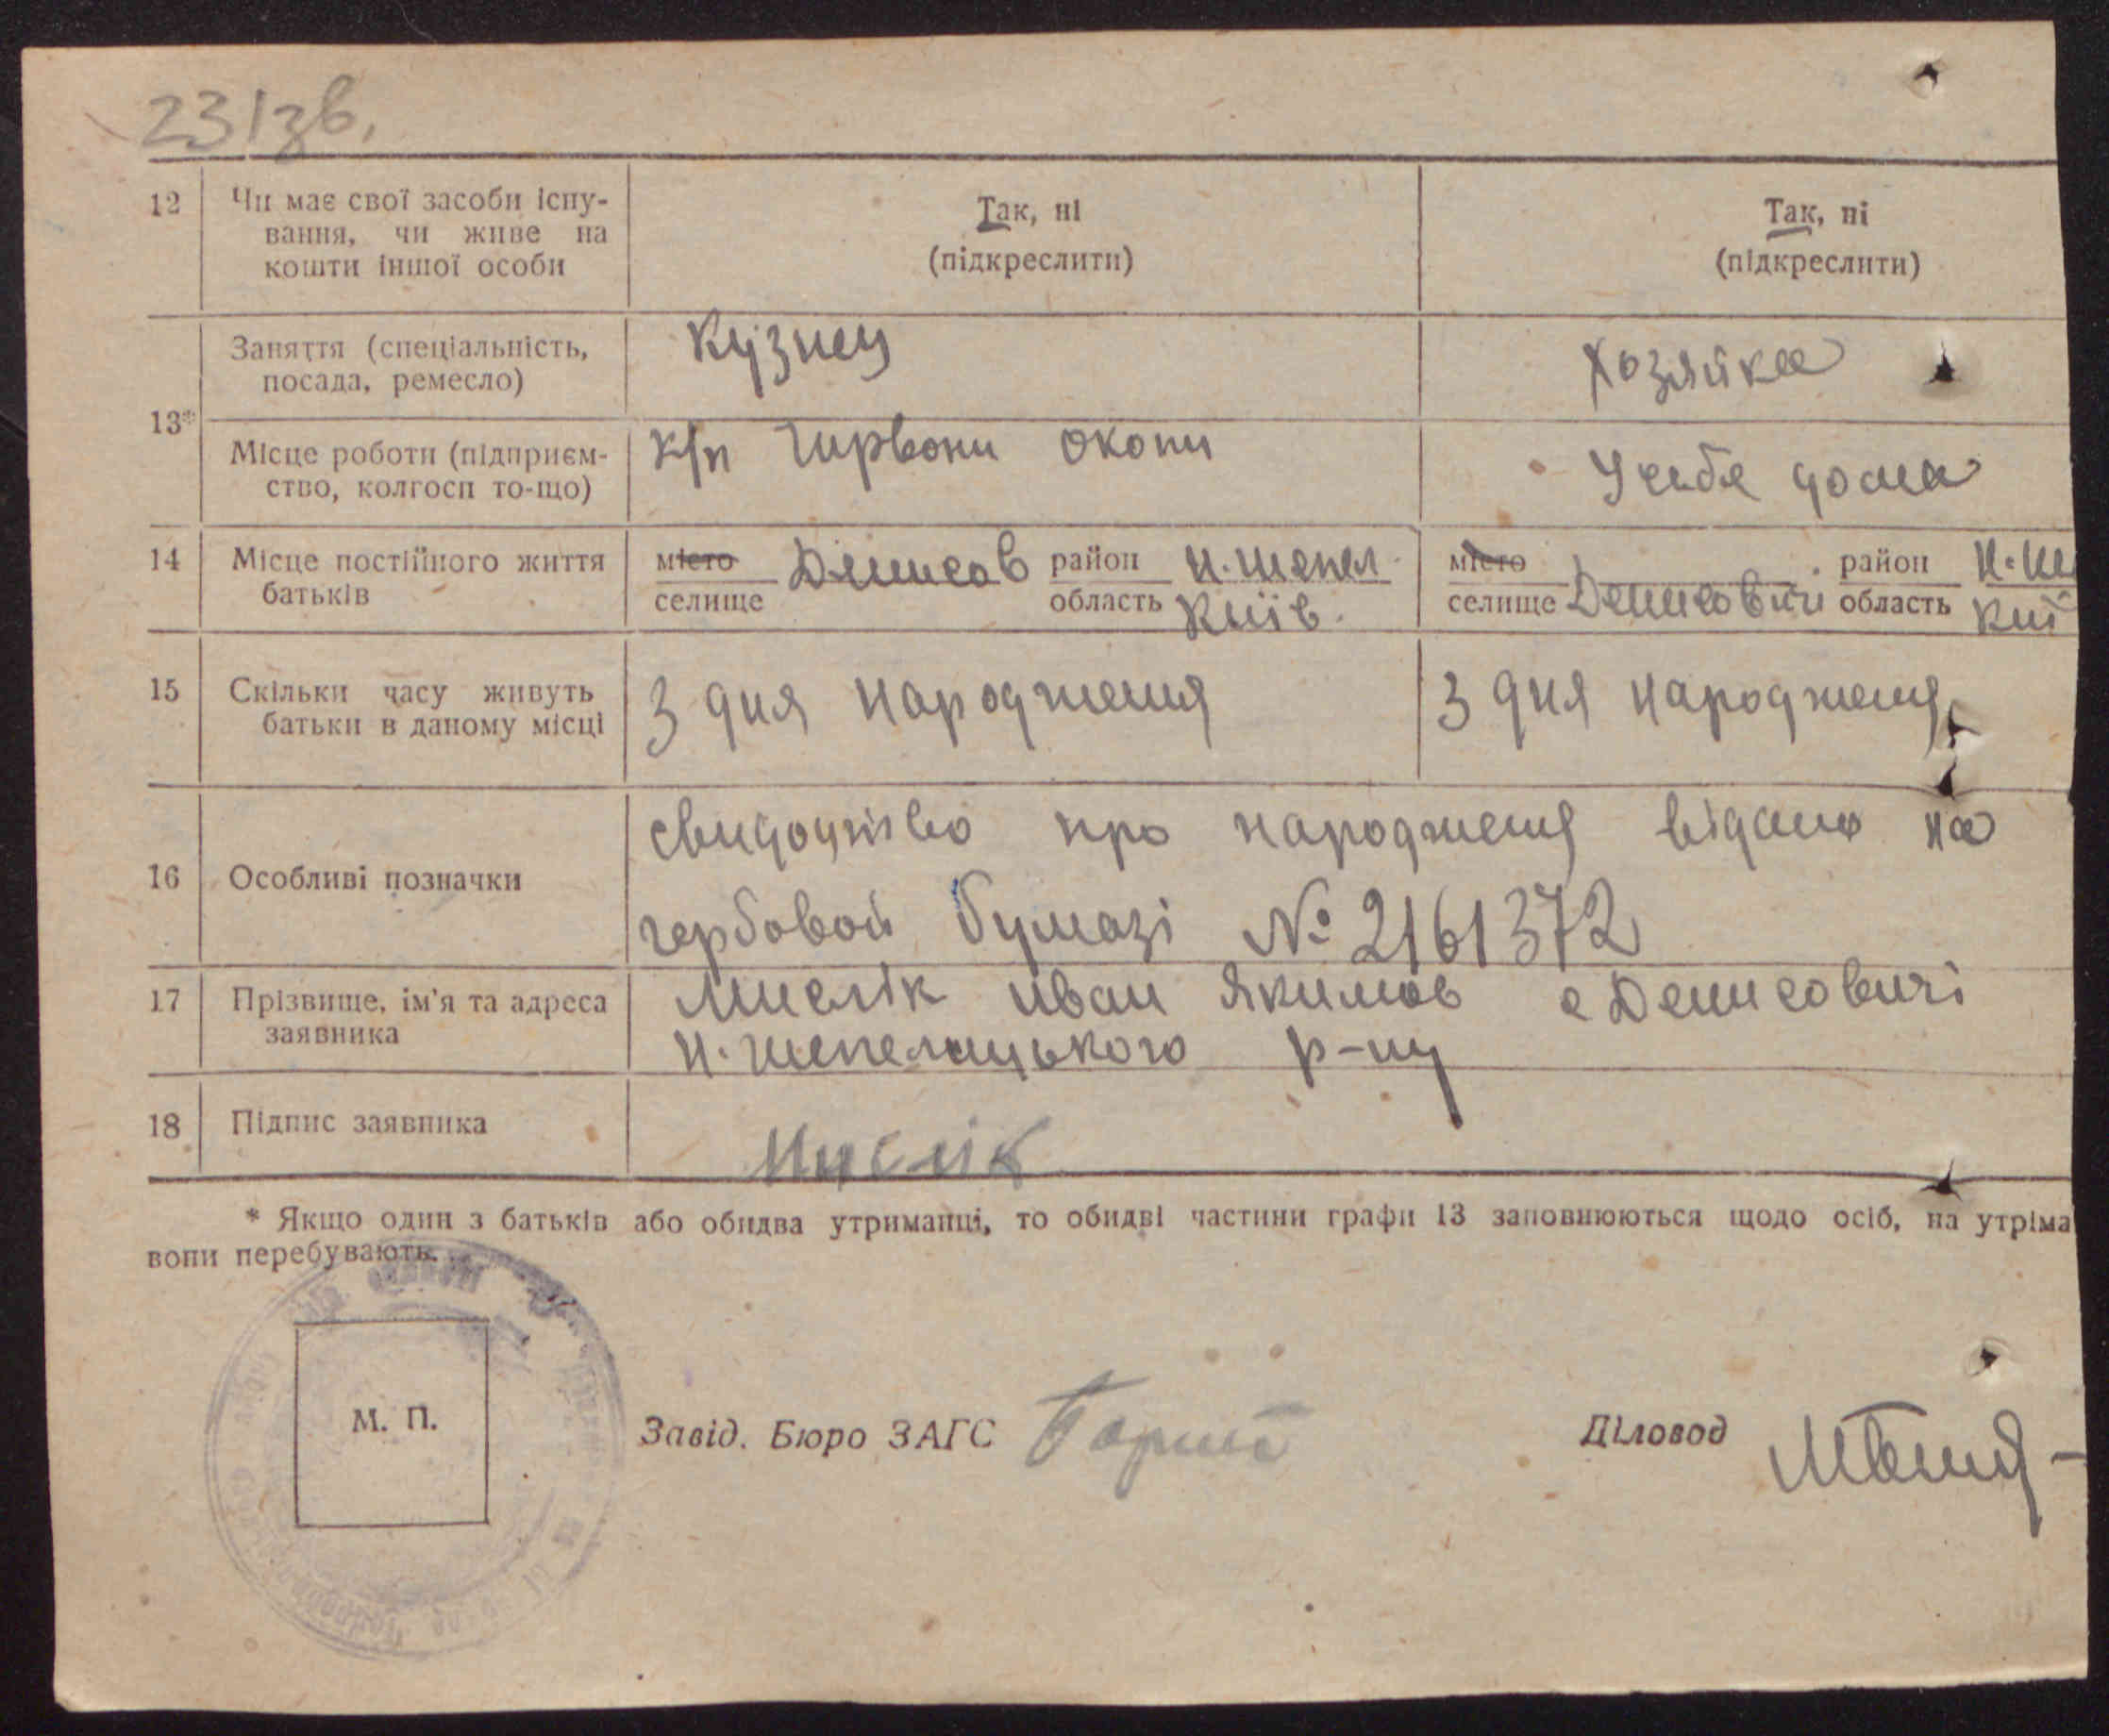 23/зв.
12 Чи має свої засоби існу- Так, ні Так, ні
вання, чи живе на
кошти іншої особи (підкреслити) (підкреслити)
Заняття (спеціальність, Кузнец Хозяйка
посада, ремесло)
13*
Місце роботи (підприєм- к/п Чирвони окопи У себе дома
ство, колгосп то-що)
14 Місце постійного життя місто Денисов район Н. Шепел. місто район Н. Ше
батьків селище область Київ. селище Денисовичі область Киї
15 Скільки часу живуть З дня народженя З дня народженя
батьки в даному місці
свидоцтво про народженя відано на
16 Особливі позначки
гербовой бумазі № 2161372
17 Прізвище, ім'я та адреса Мислік Иван Якимов с Денисовичі
заявника Н. Шепелицького р-ну
18 Підпис заявника Мислік
* Якщо один з батьків або обидва утриманці, то обидві частини графи 13 заповнюються щодо осіб, на утріма
вони перебувають.
М. П.
Завід. Бюро ЗАГС Діловод